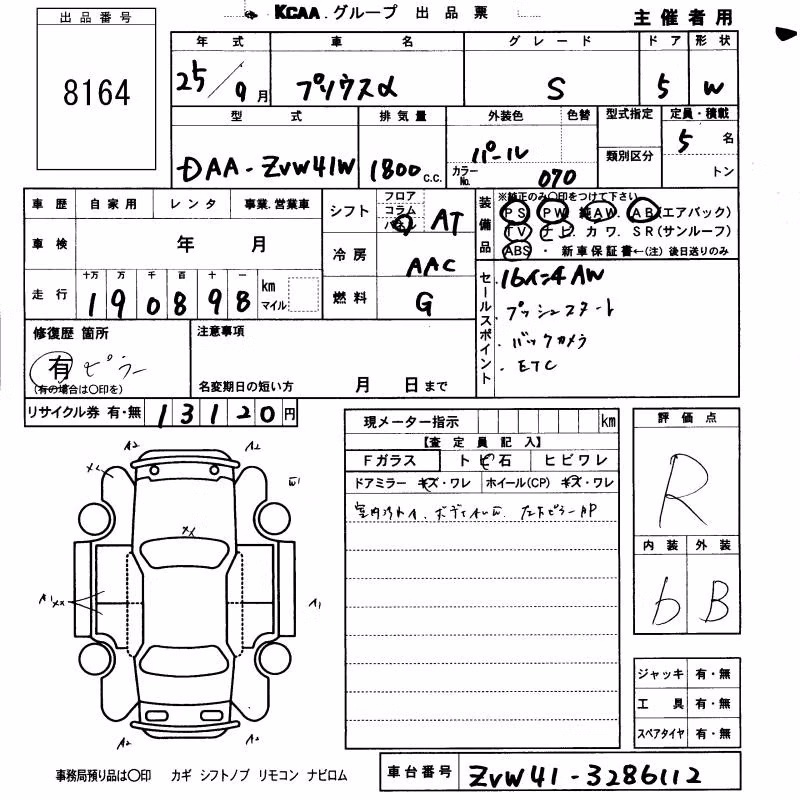 KCAA.グループ 出品票
主催者用
出品番号
8164
年式 車名 グレード ドア 形状
25/9月 プリウスα S 5 W
型式 排気量 外装色 色替 型式指定 定員・積載
類別区分
DAA-ZVW41W 1800c.c. パール 5名
カラーNo. 070 トン
車歴 自家用 レンタ 事業.営業車
シフト フロア コラム パネル AT
装備品 ※純正のみ○印をつけて下さい
PS PW 純AW. AB(エアバック)
TV ナビ. カワ. SR(サンルーフ)
ABS ・ 新車保証書←(注) 後日送りのみ
車検 年 月
冷房 AAC
走行 十万 万 千 百 十 一
190898 km マイル
燃料 G
セールスポイント
16インチAW
・プッシュスタート
・バックカメラ
・ETC
修復歴 箇所
有 ピラー
(有の場合は○印を)
注意事項
名変期日の短い方 月 日まで
リサイクル券 有・無 13120円
現メーター指示 km
【査定員記入】
Fガラス トビ石 ヒビワレ
ドアミラー キズ・ワレ ホイール(CP) キズ・ワレ
評価点
R
内装 外装
b B
A2 A2
X2
W1
XX
A1 XX
A1
A2 A2
ジャッキ 有・無
工具 有・無
スペアタイヤ 有・無
事務局預り品は○印 カギ シフトノブ リモコン ナビロム
車台番号 ZVW41-3286112